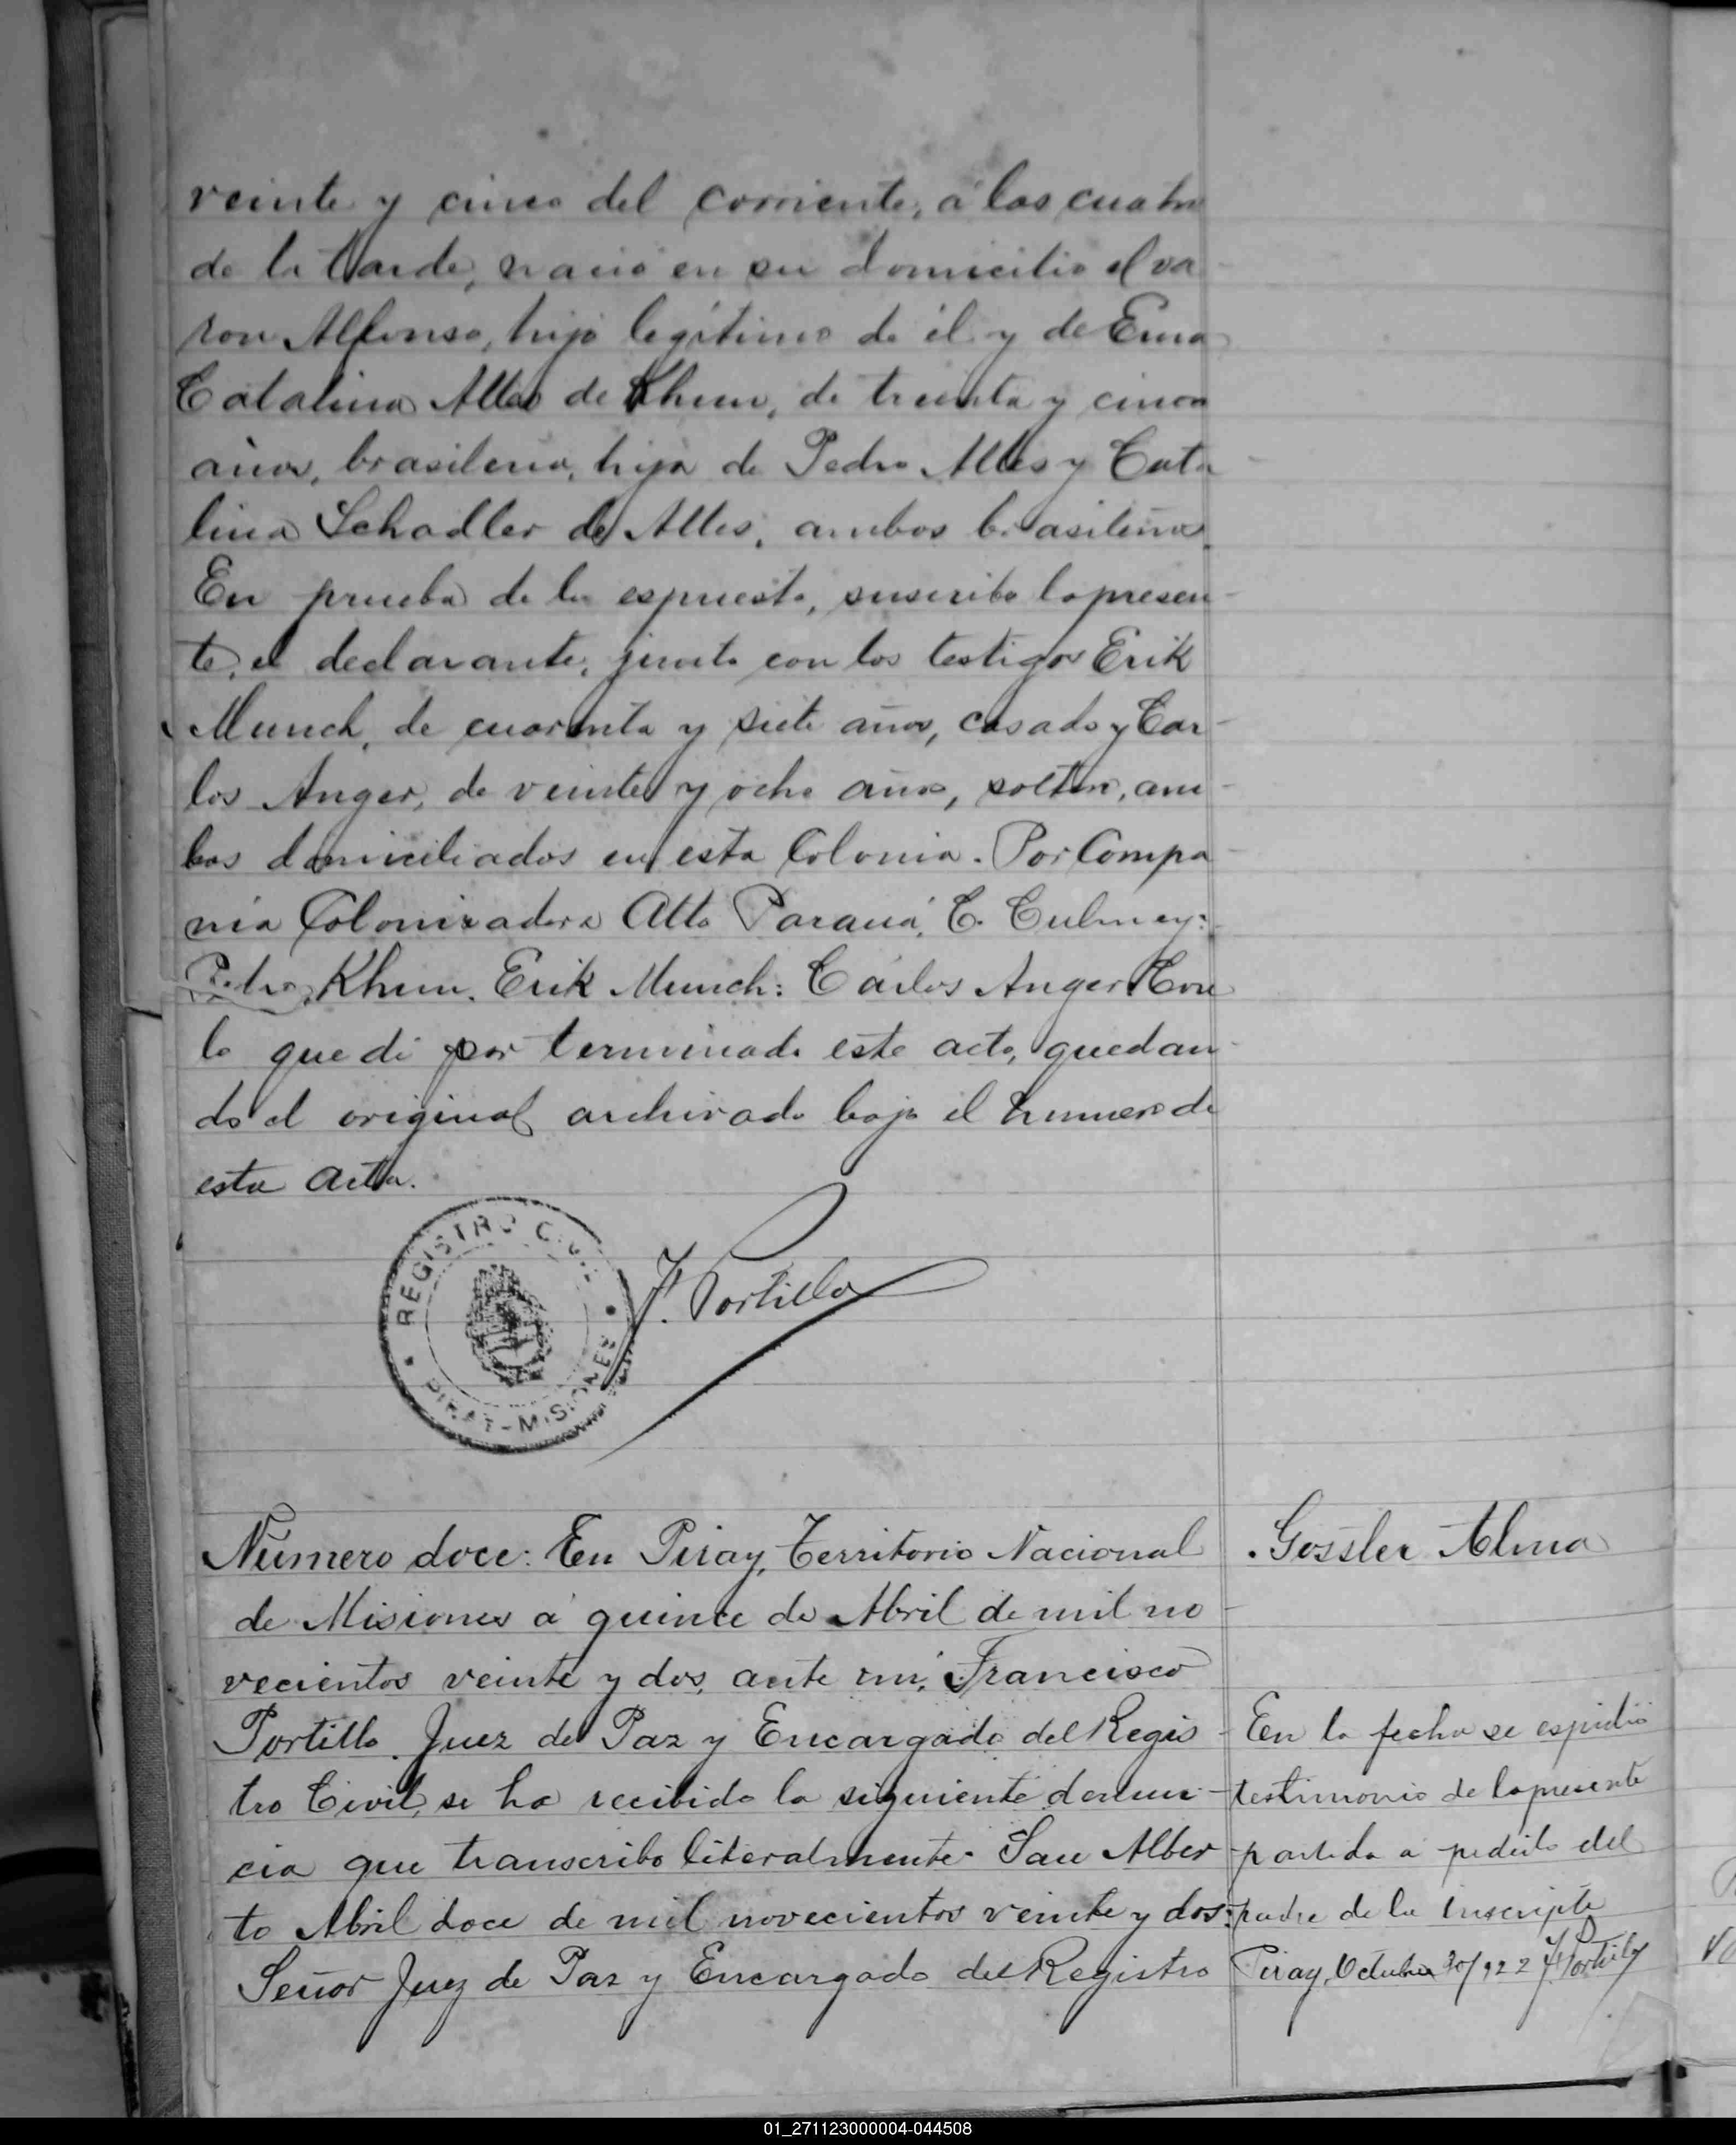 veinte y cinco del corriente, a las cuatro
de la tarde, nació en su domicilio el va
ron Alfonso, hijo legítimo de él y de Ema
Catalina Alles de Khun, de treinta y cinco
años, brasilena, hija de Pedro Alles y Cata
lina Schadler de Alles, ambos brasileños
En prueba de lo espuesto, suscribe la presen
te, el declarante, junto con los testigos Erik
Munch, de cuarenta y siete años, casado y Car-
los Anger, de veinte y ocho años, soltero, am-
bos domiciliados en esta Colonia. Por Compa
nia Colonizadora Alto Paraná, C. Culmey:
Pedro Khun. Erik Munch: Carlos Anger Con
lo que di por terminado este acto, quedan
do el original archivado bajo el numero de
esta acta.
REGISTRO CIVIL
PIRAY - MISIONES
F. Portillo
Número doce: En Piray, Territorio Nacional
de Misiones a quince de Abril de mil no-
vecientos veinte y dos, ante mi, Francisco
Portillo Juez de Paz y Encargado del Regis-
tro Civil, se ha recibido la siguiente denun-
cia que transcribo literalmente- San Alber-
to Abril doce de mil novecientos veinte y dos:
Señor Juez de Paz y Encargado del Registro
Gossler Alma
En la fecha se espidió
testimonio de la presente
partida a pedido del
padre de la inscripta
Piray, Octubre 30/922 F Portillo
01_271123000004-044508